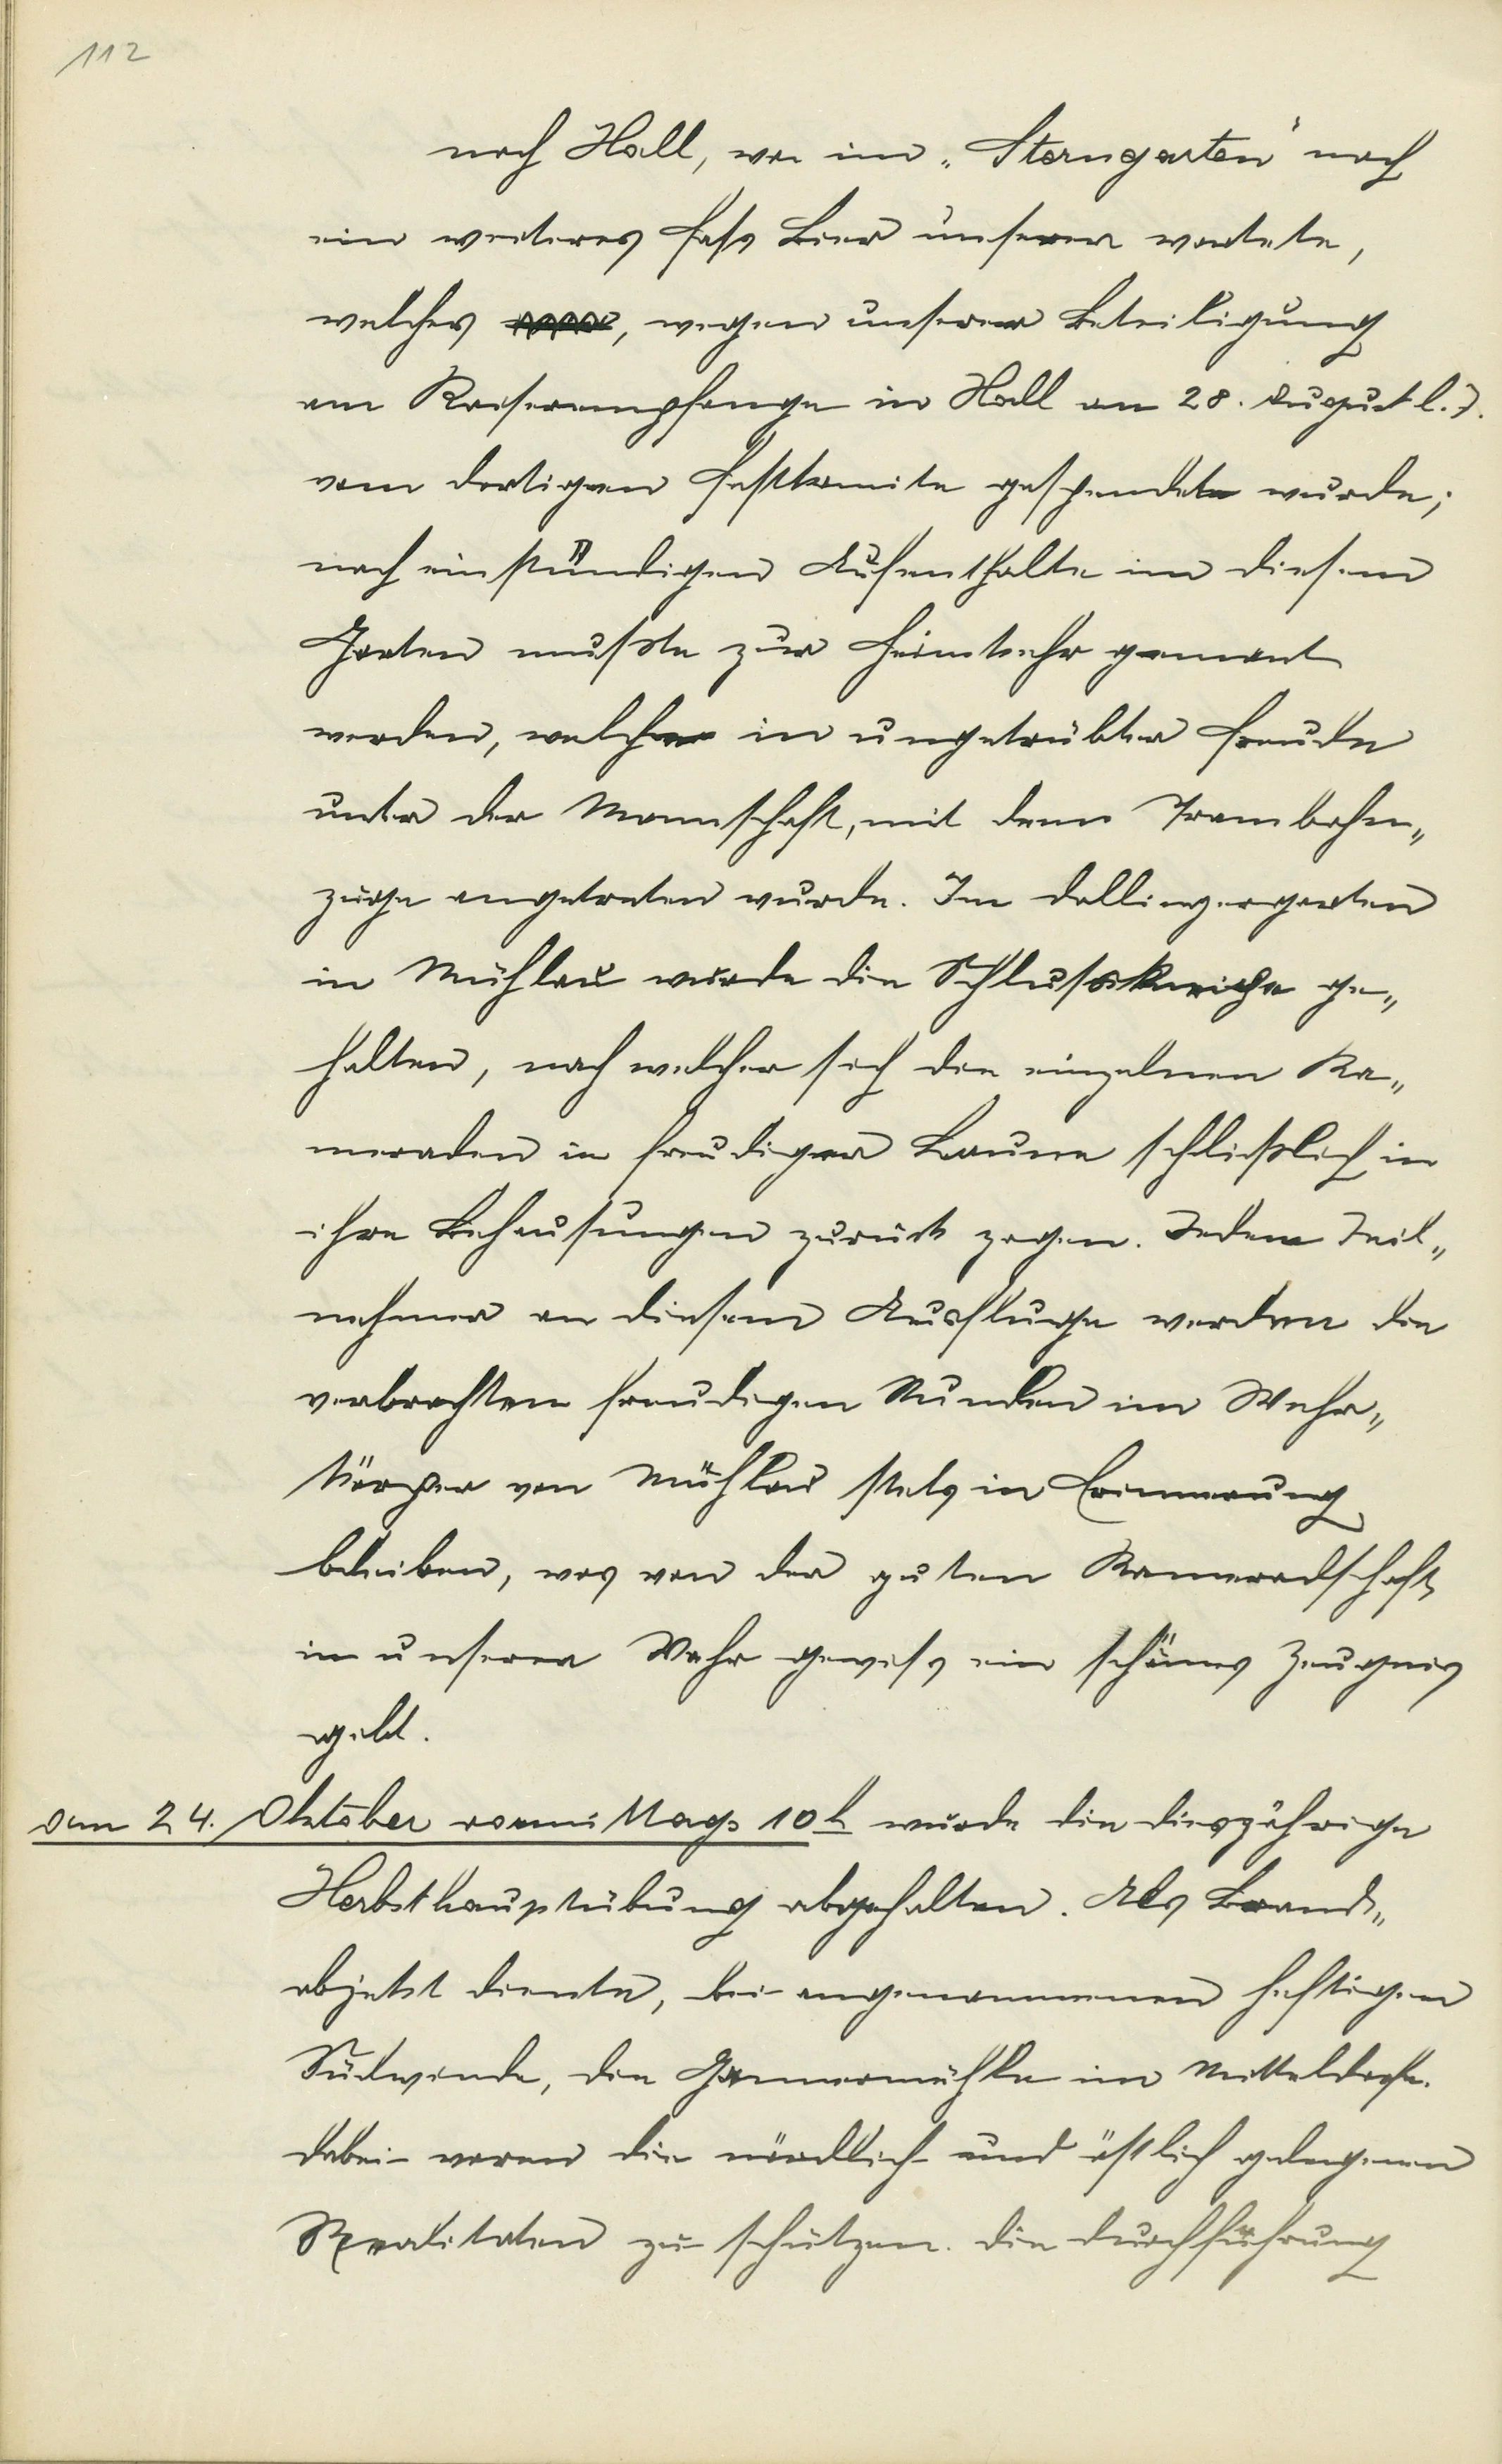 112
nach Hall, wo im „Sterngarten" noch
ein weiteres Fass Bier unserer wartete,
welches , wegen unserer Beteiligung
am Kaiserempfange in Hall am 28. August l. J.
vom dortigen Festkomite gespendet wurde;
nach einstündigen Aufenthalte im diesem
Garten mußte zur Heimkehr gemant
werden, welche in ungetrübter Freude
unter der Mannschaft, mit dem Trambahn„
zuge angetreten wurde. Im Dollingergarten
in Mühlau wurde die Schlusskneipe ge„
halten, nach welcher sich die einzelnen Ka„
meraden in freudiger Laune schließlich in
ihre Behausungen zurück zogen. Jedem Teil„
nehmer an diesem Ausfluge werden die
verbrachten freudigen Stunden im Wehr„
körper von Mühlau stets in Erinnerung
bleiben, was von der guten Kameradschaft
in unserer Wehr gewiss ein schönes Zeugnis
gebt.
Am 24. Oktober vormittags 10h wurde die diesjährige
Herbsthauptübung abgehalten. Als Brand„
objekt diente, bei angenommenen heftigen
Südwinde, die Gannermühle im Mitteldorfe.
Dabei waren die nördlich und östlich gelegenen
Realitäten zu schützen. Die Durchführung